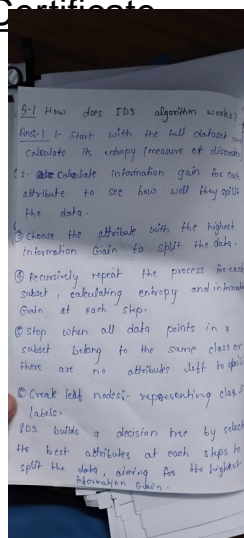 Certificate
Q-1 How does ID3 algorithm works?
Ans:-1 1- Start with the full dataset and
Calculate its entropy (measure of disorder
2- Calculate information gain for each
attribute to see how well they split
the data.
③ Choose the attribute with the highest
Information Gain to split the data.
④ Recursively repeat the process for each
subset, calculating entropy and informat
Gain at each step.
⑤ Stop when all data points in a
subset belong to the same class or
there are no attributes left to split
⑥ Create leaf nodes:- representing class
labels.
ID3 builds a decision tree by select
the best attributes at each steps to
split the data, aiming for the highest
information Gain.